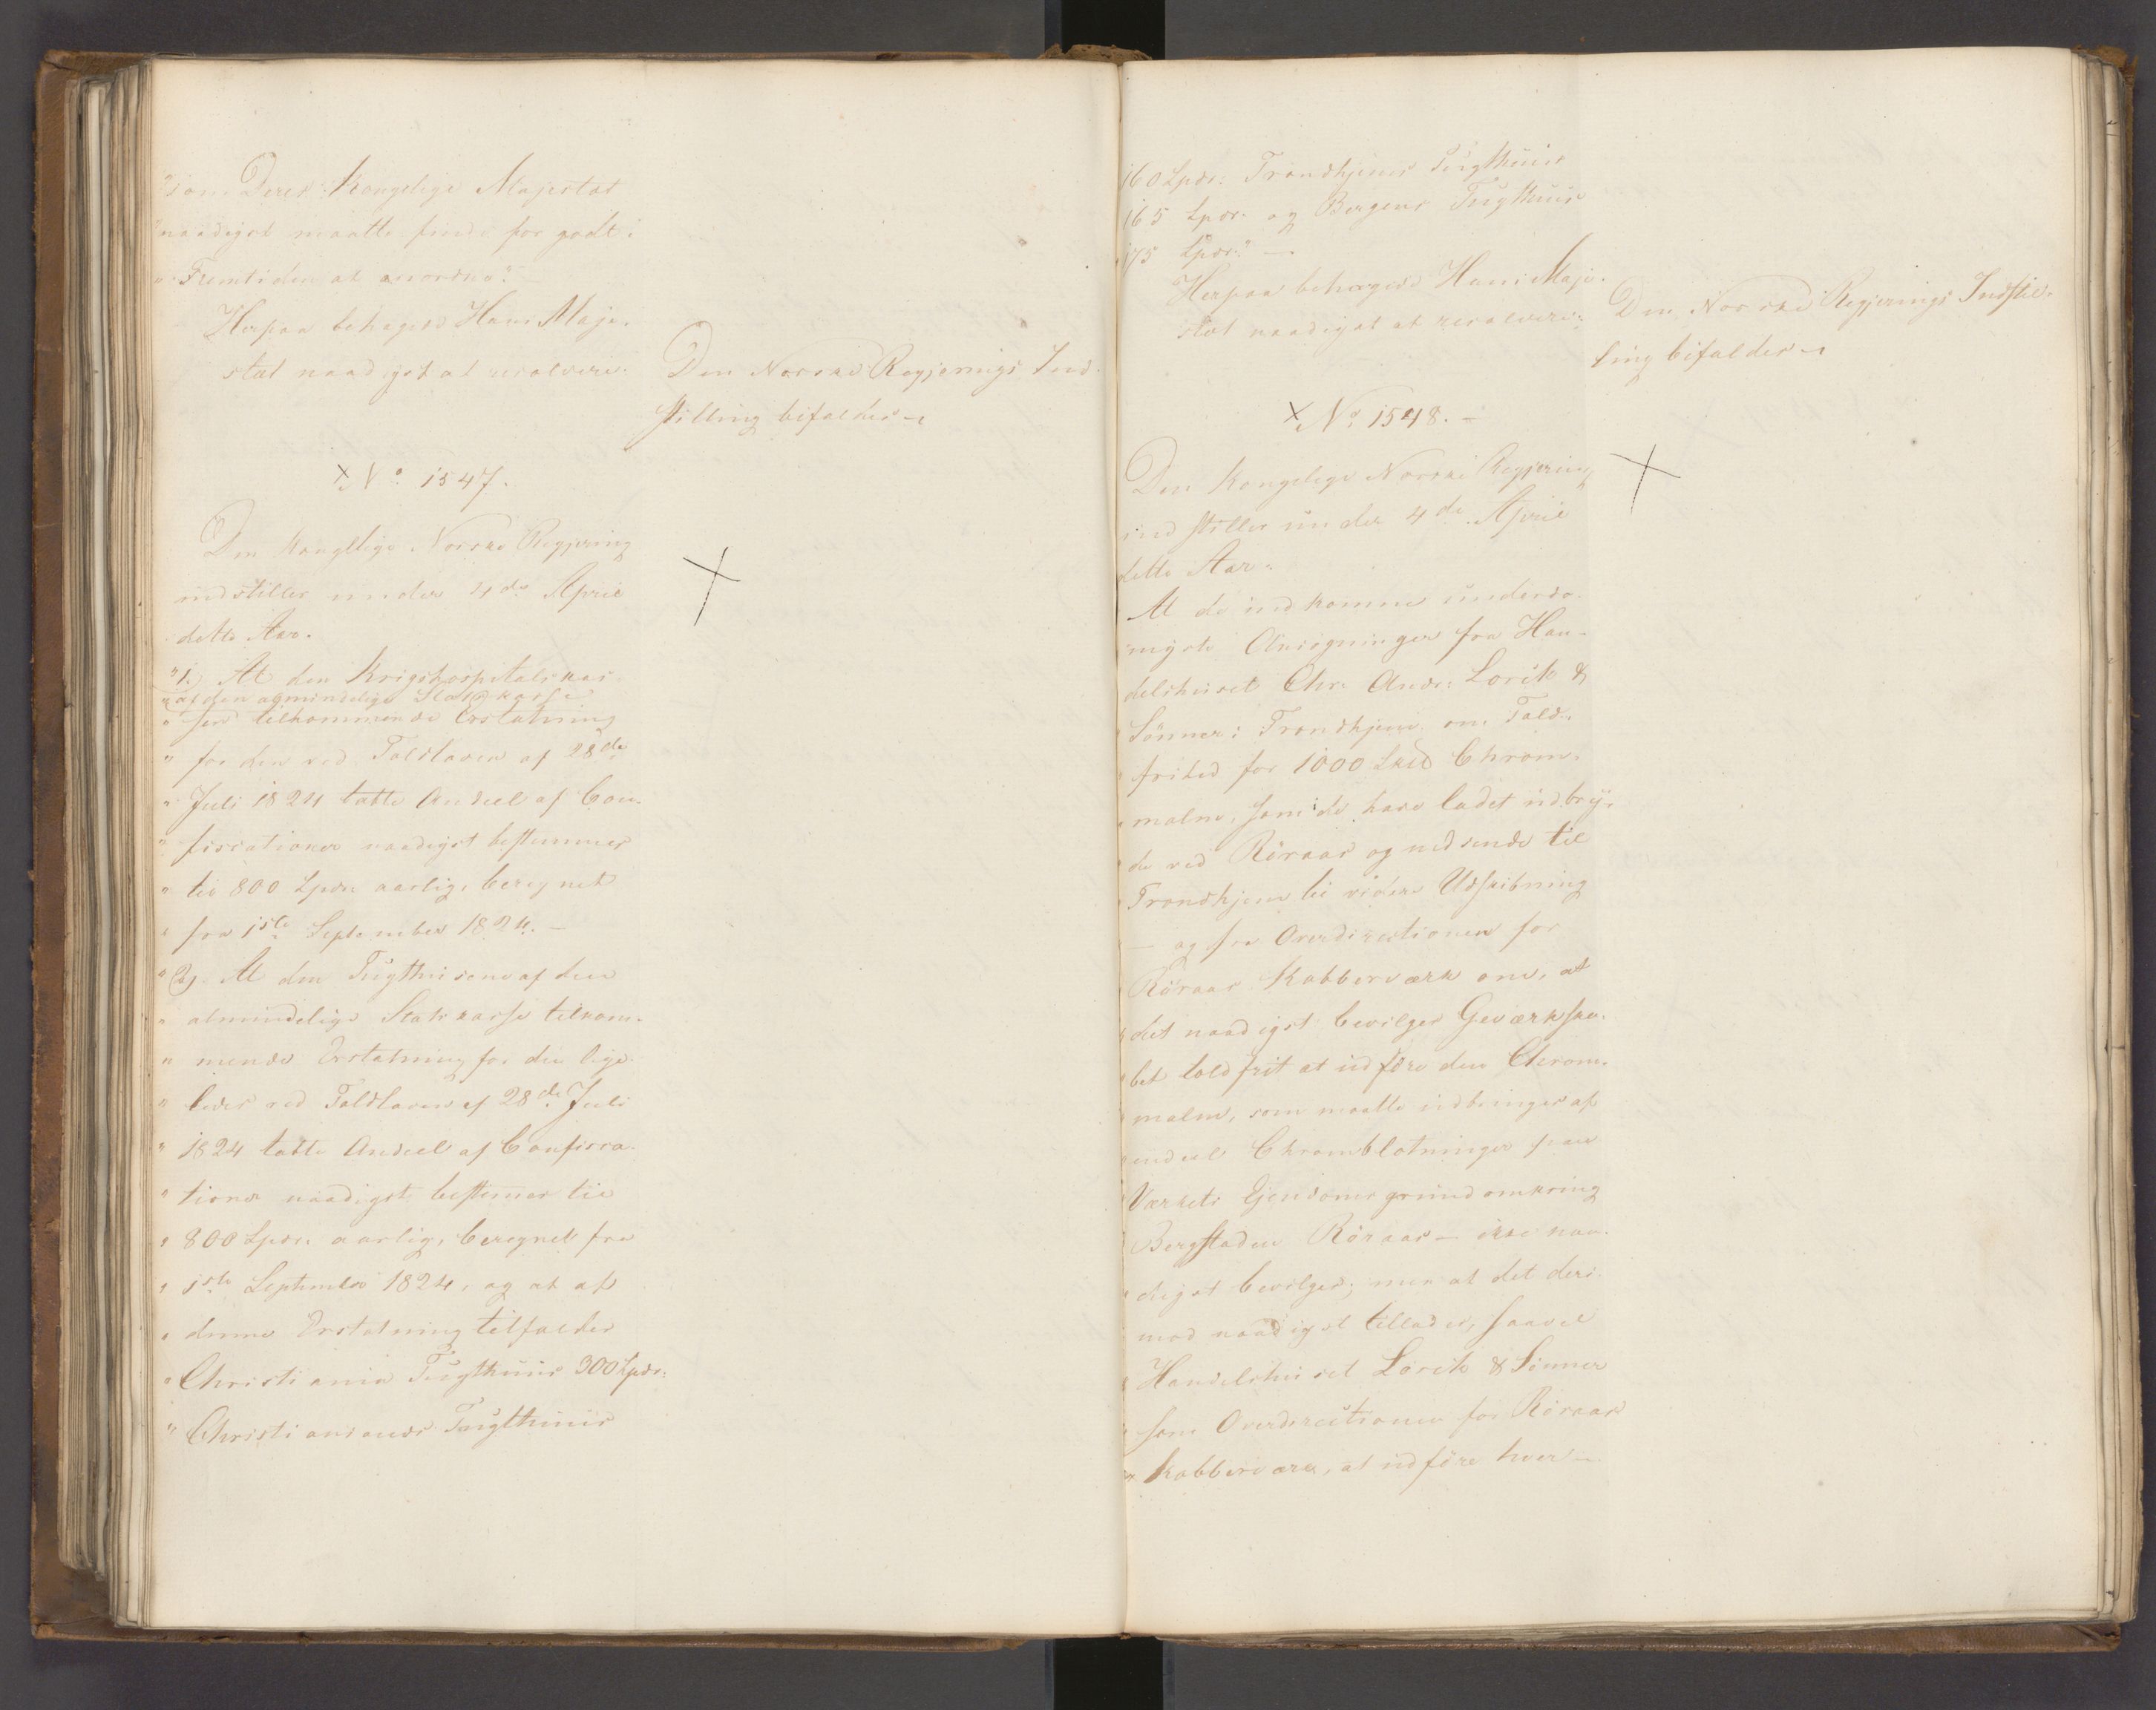 "som Deres Kongelige Majestæt
"naadigst maatte finde for godt i
" Fremtiden at anordne." —
Herpaa behagede Hans Maje-
stæt naadigst at resolvere:
Den Norske Regjerings Ind-
stilling bifaldes
× No. 1547.
Den Kongelige Norske Regjering
indstiller under 4de April
dette Aar.
"1. At den Krigshospitalskas-
"af den almindelige Statskasse
" sen tilkommende Erstatning
" for den ved Toldloven af 28de
" Juli 1824 tabte Andeel af Con-
" fiscationer naadigst bestemmes
" til 800 Spdr. aarlig, beregnet
" fra 1ste September 1824. —
" 2) At den Tugthusene af den
" almindelige Statskasse tilkom-
" mende Erstatning for den lige-
" ledes ved Toldloven af 28de Juli
" 1824 tabte Andeel af Confisca-
" tioner naadigst bestemmes til
" 800 Spdr. aarlig, beregnet fra
" 1ste September 1824, og at af
" denne Erstatning tilfalder
" Christiania Tugthuus 300 Spdr.
" Christiansands Tugthuus
160 Spdr: Trondhjems Tugthuus
165 Spdr. og Bergens Tugthuus
175 Spdr." —
Herpaa behagede Hans Maje-
stæt naadigst at resolvere:
Den Norske Regjerings Indstil-
ling bifaldes
× No. 1548. —
Den Kongelige Norske Regjering
indstiller under 4de April
dette Aar:
At de indkomne underda-
nigste Ansøgninger fra Han-
delshuset Chr. Andr: Lorck &
Sönner i Trondhjem om Told-
frihed for 1000 Sk℔ Chrom-
malm, som de have ladet udbry-
de ved Röraas og nedsende til
Trondhjem til videre Udskibning
— og fra Overdirectionen for
Röraas Kobberværk om, at
det naadigst bevilges Geværkska-
bet toldfrit at udföre den Chrom-
malm, som maatte udbringes af
endeel Chromblotninger paa
Værkets Ejendomsgrund omkring
Bergstaden Röraas — ikke naa-
digst bevilges; men at det deri-
mod naadigst tillades, saavel
Handelshuset Lorck & Sönner
som Overdirectionen for Röraas
" Kobberværk, at udföre hver —